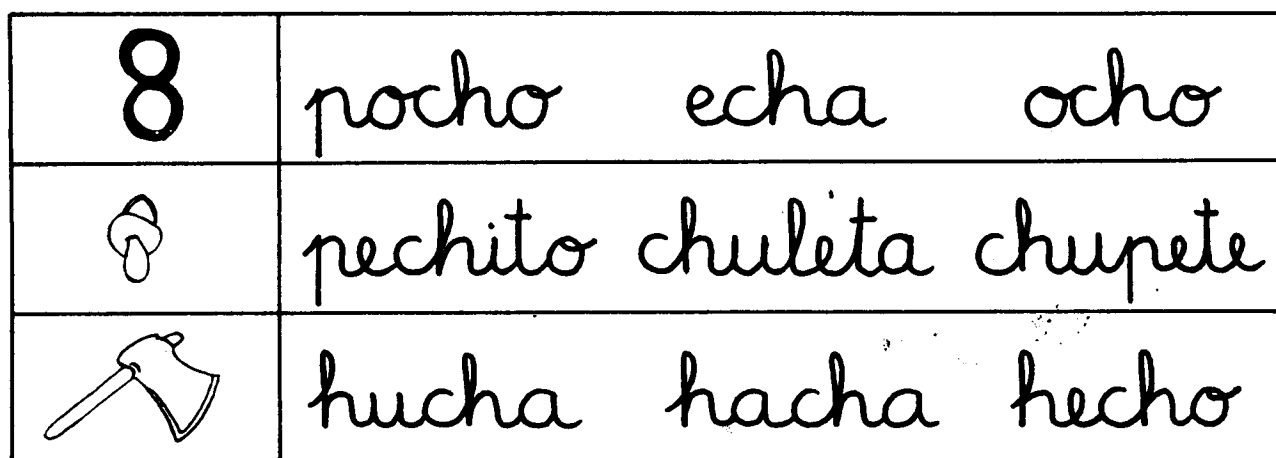 8 pocho echa ocho
pechito chuleta chupete
hucha hacha hecho